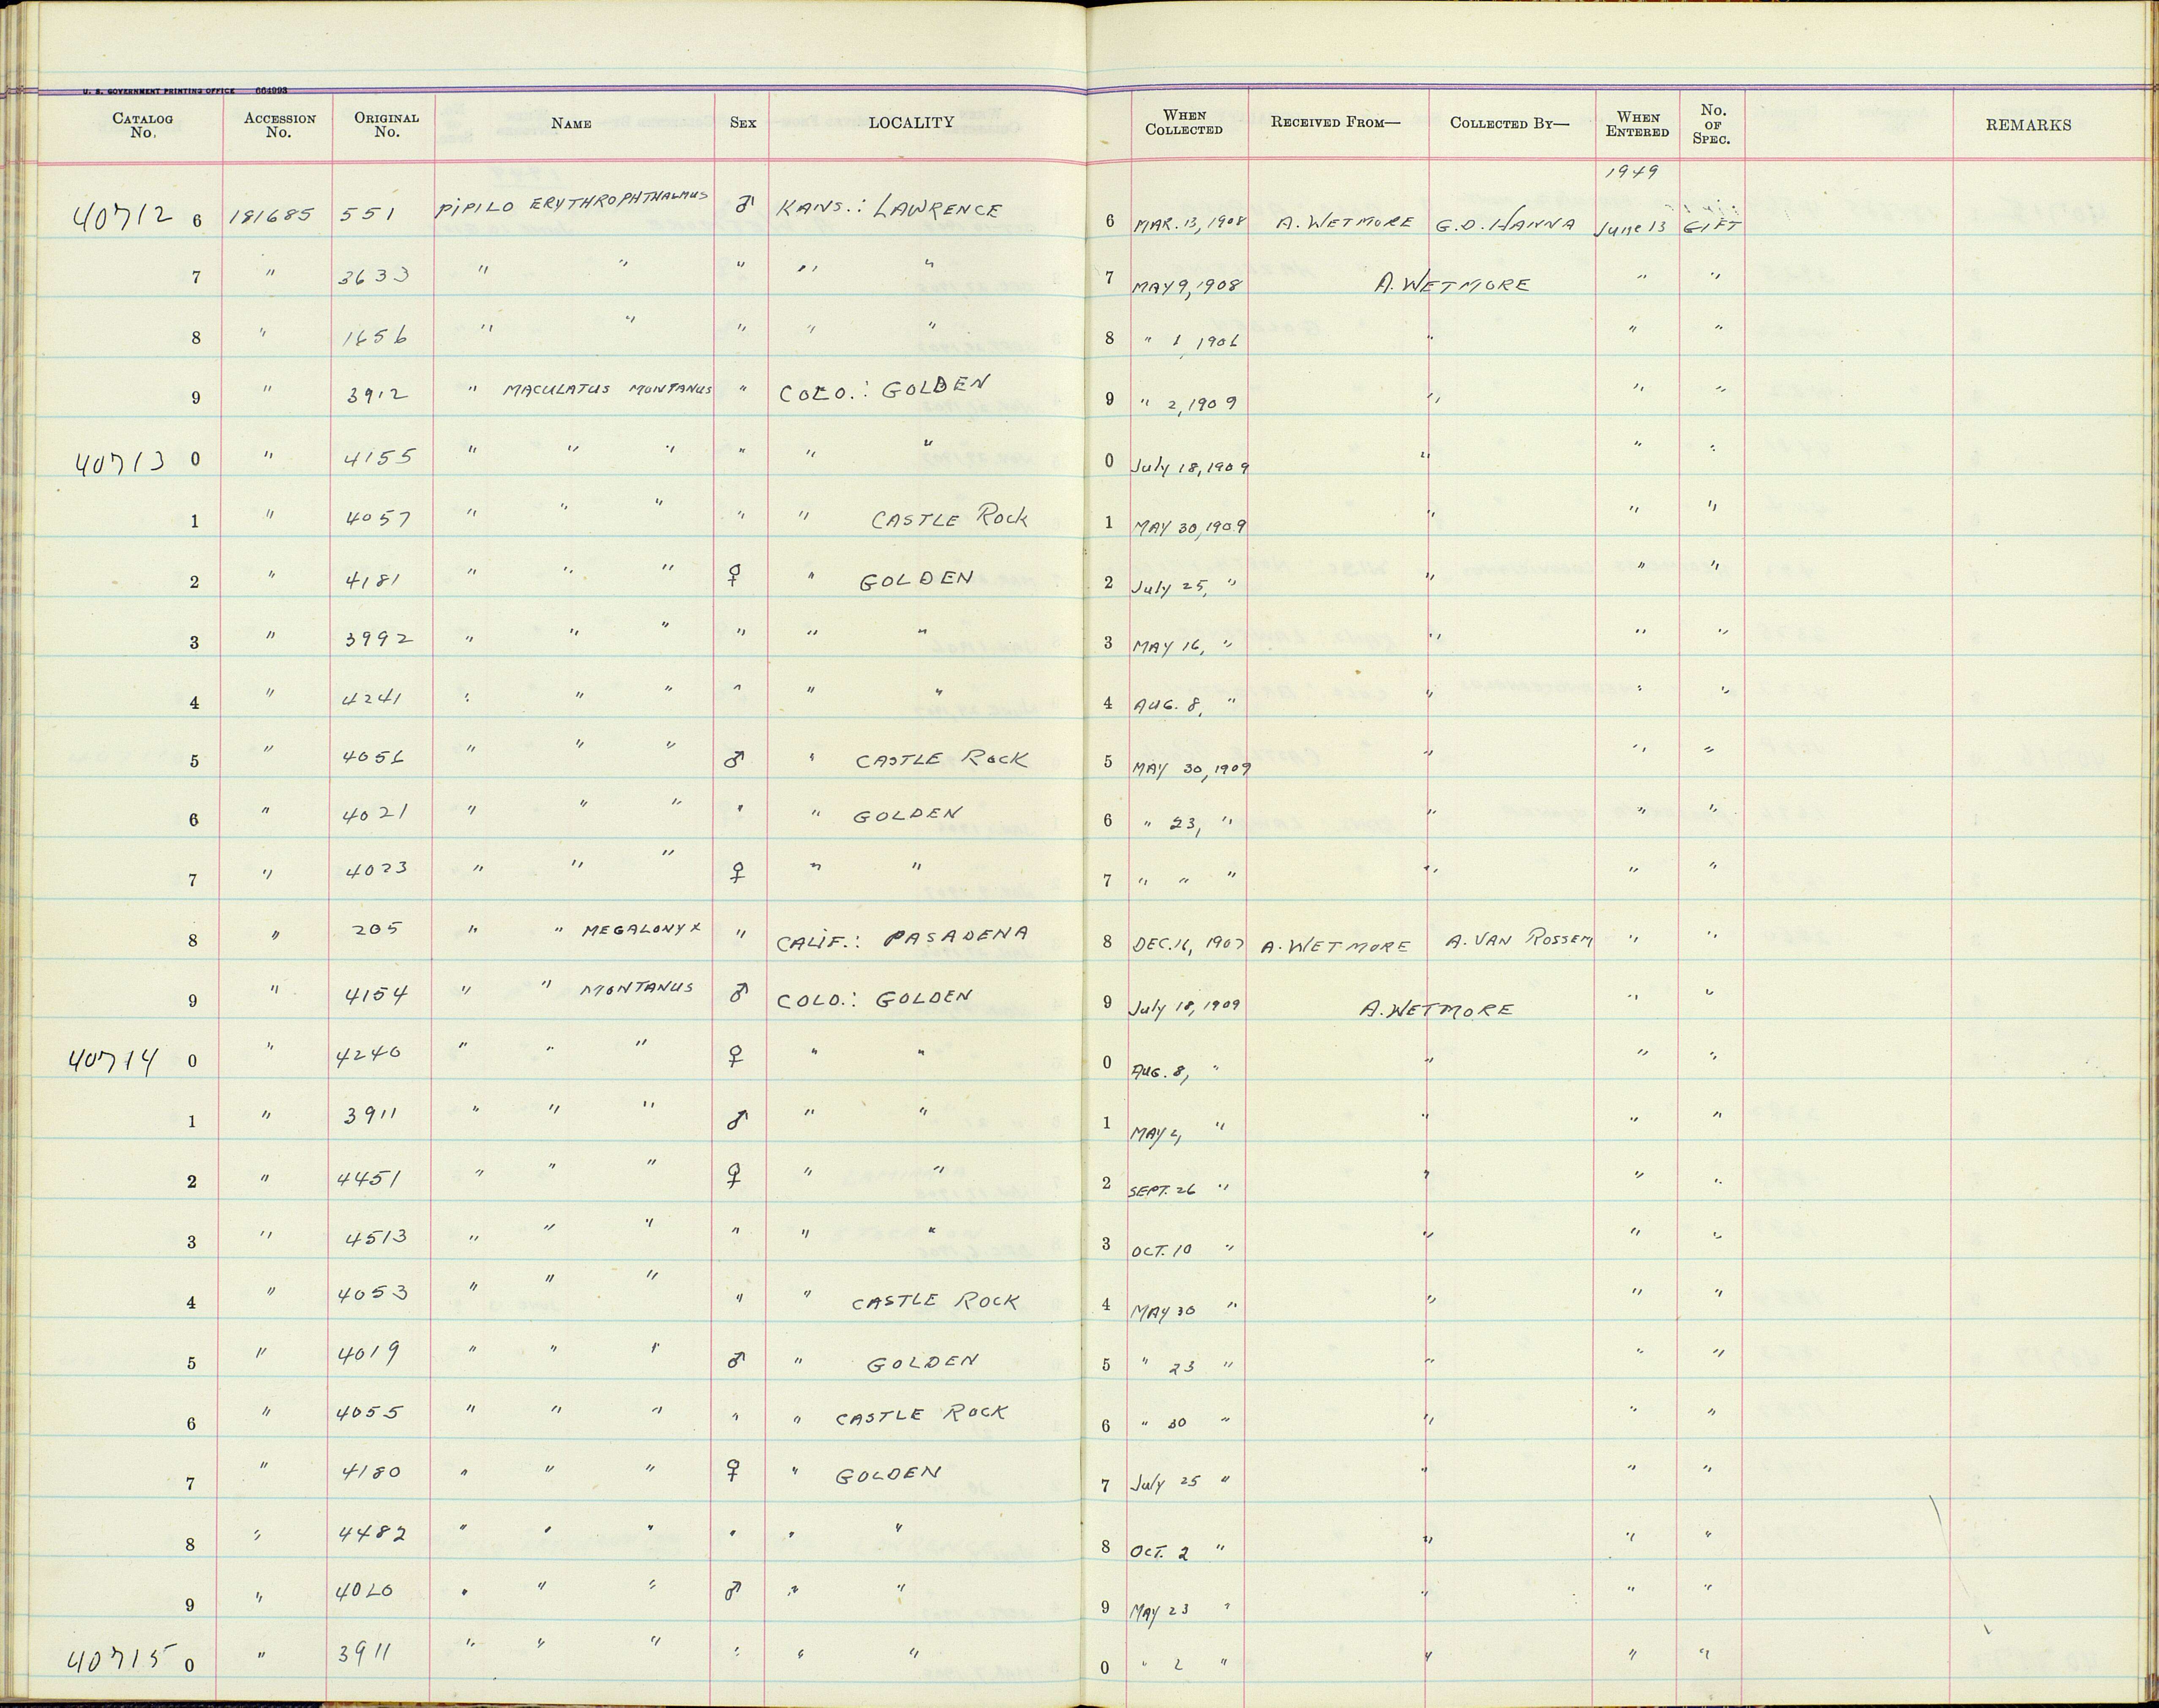 U. S. GOVERNMENT PRINTING OFFICE 664993
CATALOG No. ACCESSION No. ORIGINAL No. NAME SEX LOCALITY WHEN COLLECTED RECEIVED FROM— COLLECTED BY— WHEN ENTERED No. OF SPEC. REMARKS
1949
40712 6 181685 551 PIPILO ERYTHROPHTHALMUS ♂ KANS.: LAWRENCE 6 MAR. 13, 1908 A. WETMORE G.D. HANNA June 13 GIFT
7 " 3633 " " " " " 7 MAY 9, 1908 A. WETMORE " "
8 " 1656 " " " " " 8 " 1, 1906 " " "
9 " 3912 " MACULATUS MONTANUS " COLO.: GOLDEN 9 " 2, 1909 " " "
40713 0 " 4155 " " " " " " 0 July 18, 1909 " " "
1 " 4057 " " " " " CASTLE Rock 1 MAY 30, 1909 " " "
2 " 4181 " " " ♀ " GOLDEN 2 July 25, " " " "
3 " 3992 " " " " " " 3 MAY 16, " " " "
4 " 4241 " " " " " " 4 AUG. 8, " " " "
5 " 4056 " " " ♂ " CASTLE ROCK 5 MAY 30, 1909 " " "
6 " 4021 " " " " " GOLDEN 6 " 23, " " " "
7 " 4023 " " " ♀ " " 7 " " " " " "
8 " 205 " " MEGALONYX " CALIF.: PASADENA 8 DEC. 16, 1907 A. WETMORE A. VAN ROSSEM " "
9 " 4154 " " MONTANUS ♂ COLO.: GOLDEN 9 July 18, 1909 A. WETMORE " "
40714 0 " 4240 " " " ♀ " " 0 AUG. 8, " " " "
1 " 3911 " " " ♂ " " 1 MAY 2, " " " "
2 " 4451 " " " ♀ " " 2 SEPT. 26 " " " "
3 " 4513 " " " " " " 3 OCT. 10 " " " "
4 " 4053 " " " " " CASTLE ROCK 4 MAY 30 " " " "
5 " 4019 " " " ♂ " GOLDEN 5 " 23 " " " "
6 " 4055 " " " " " CASTLE ROCK 6 " 30 " " " "
7 " 4180 " " " ♀ " GOLDEN 7 July 25 " " " "
8 " 4482 " " " " " " 8 OCT. 2 " " " "
9 " 4020 " " " ♂ " " 9 MAY 23 " " " "
40715 0 " 3911 " " " " " " 0 " 2 " " " "